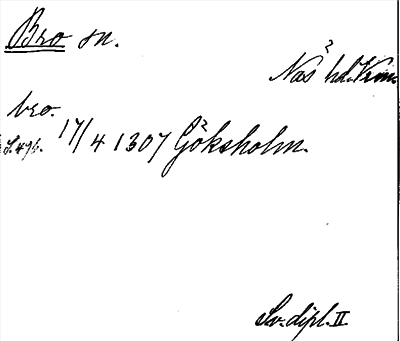 Bro sn.
Näs hd. Vrm.
bro.
17/4 1307 Göksholm.
Sv. dipl. II